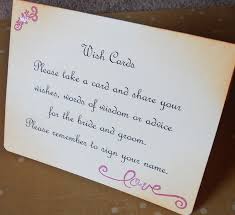 Wish Cards
Please take a card and share your
wishes, words of wisdom or advice
for the bride and groom.
Please remember to sign your name.
love